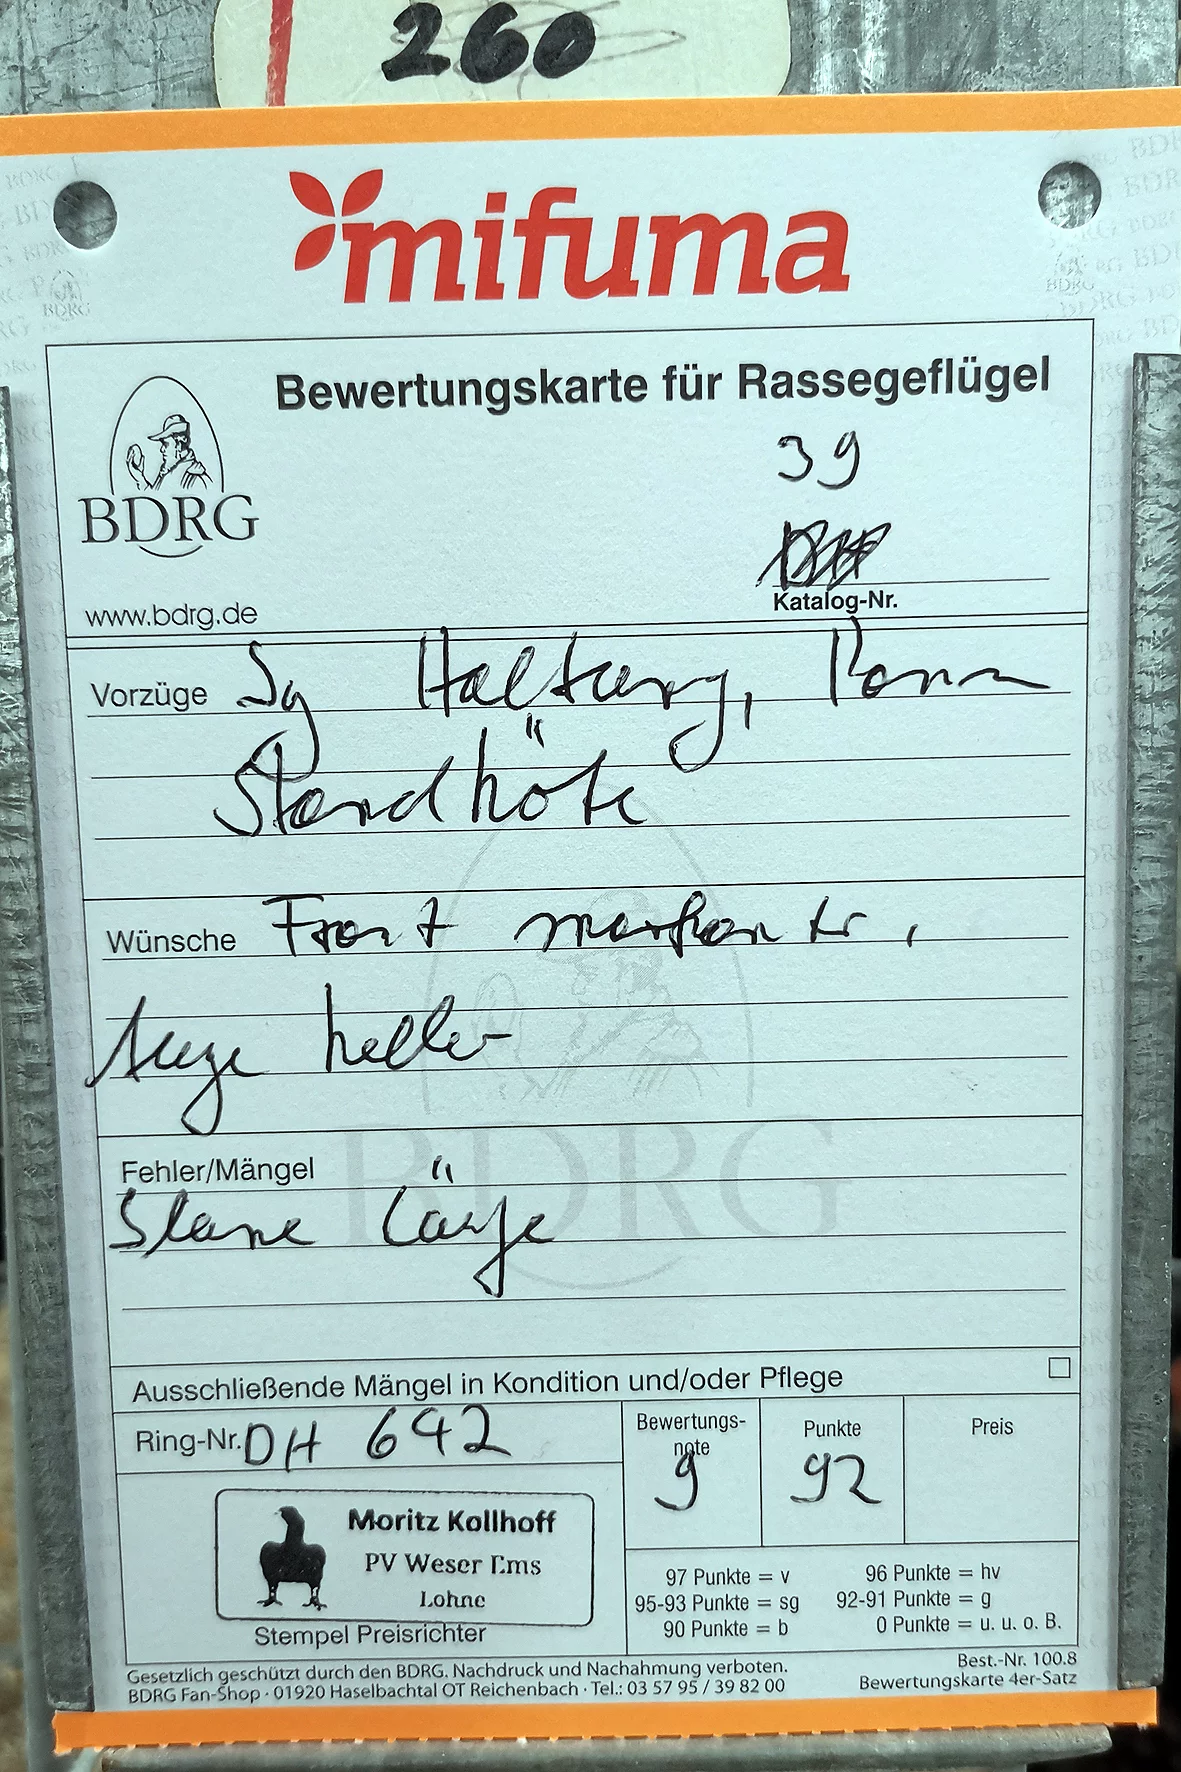 260
mifuma
Bewertungskarte für Rassegeflügel
39
BDRG
www.bdrg.de
Katalog-Nr.
Vorzüge Sg Haltung,
Standhöhe
Wünsche Front markanter,
Auge heller
Fehler/Mängel
Blaue Läufe
Ausschließende Mängel in Kondition und/oder Pflege
Ring-Nr. DH 642
Bewertungs-
note
g
Punkte
92
Preis
Moritz Kollhoff
PV Weser Ems
Lohne
Stempel Preisrichter
97 Punkte = v 96 Punkte = hv
95-93 Punkte = sg 92-91 Punkte = g
90 Punkte = b 0 Punkte = u. u. o. B.
Gesetzlich geschützt durch den BDRG. Nachdruck und Nachahmung verboten.
BDRG Fan-Shop · 01920 Haselbachtal OT Reichenbach · Tel.: 03 57 95 / 39 82 00
Best.-Nr. 100.8
Bewertungskarte 4er-Satz